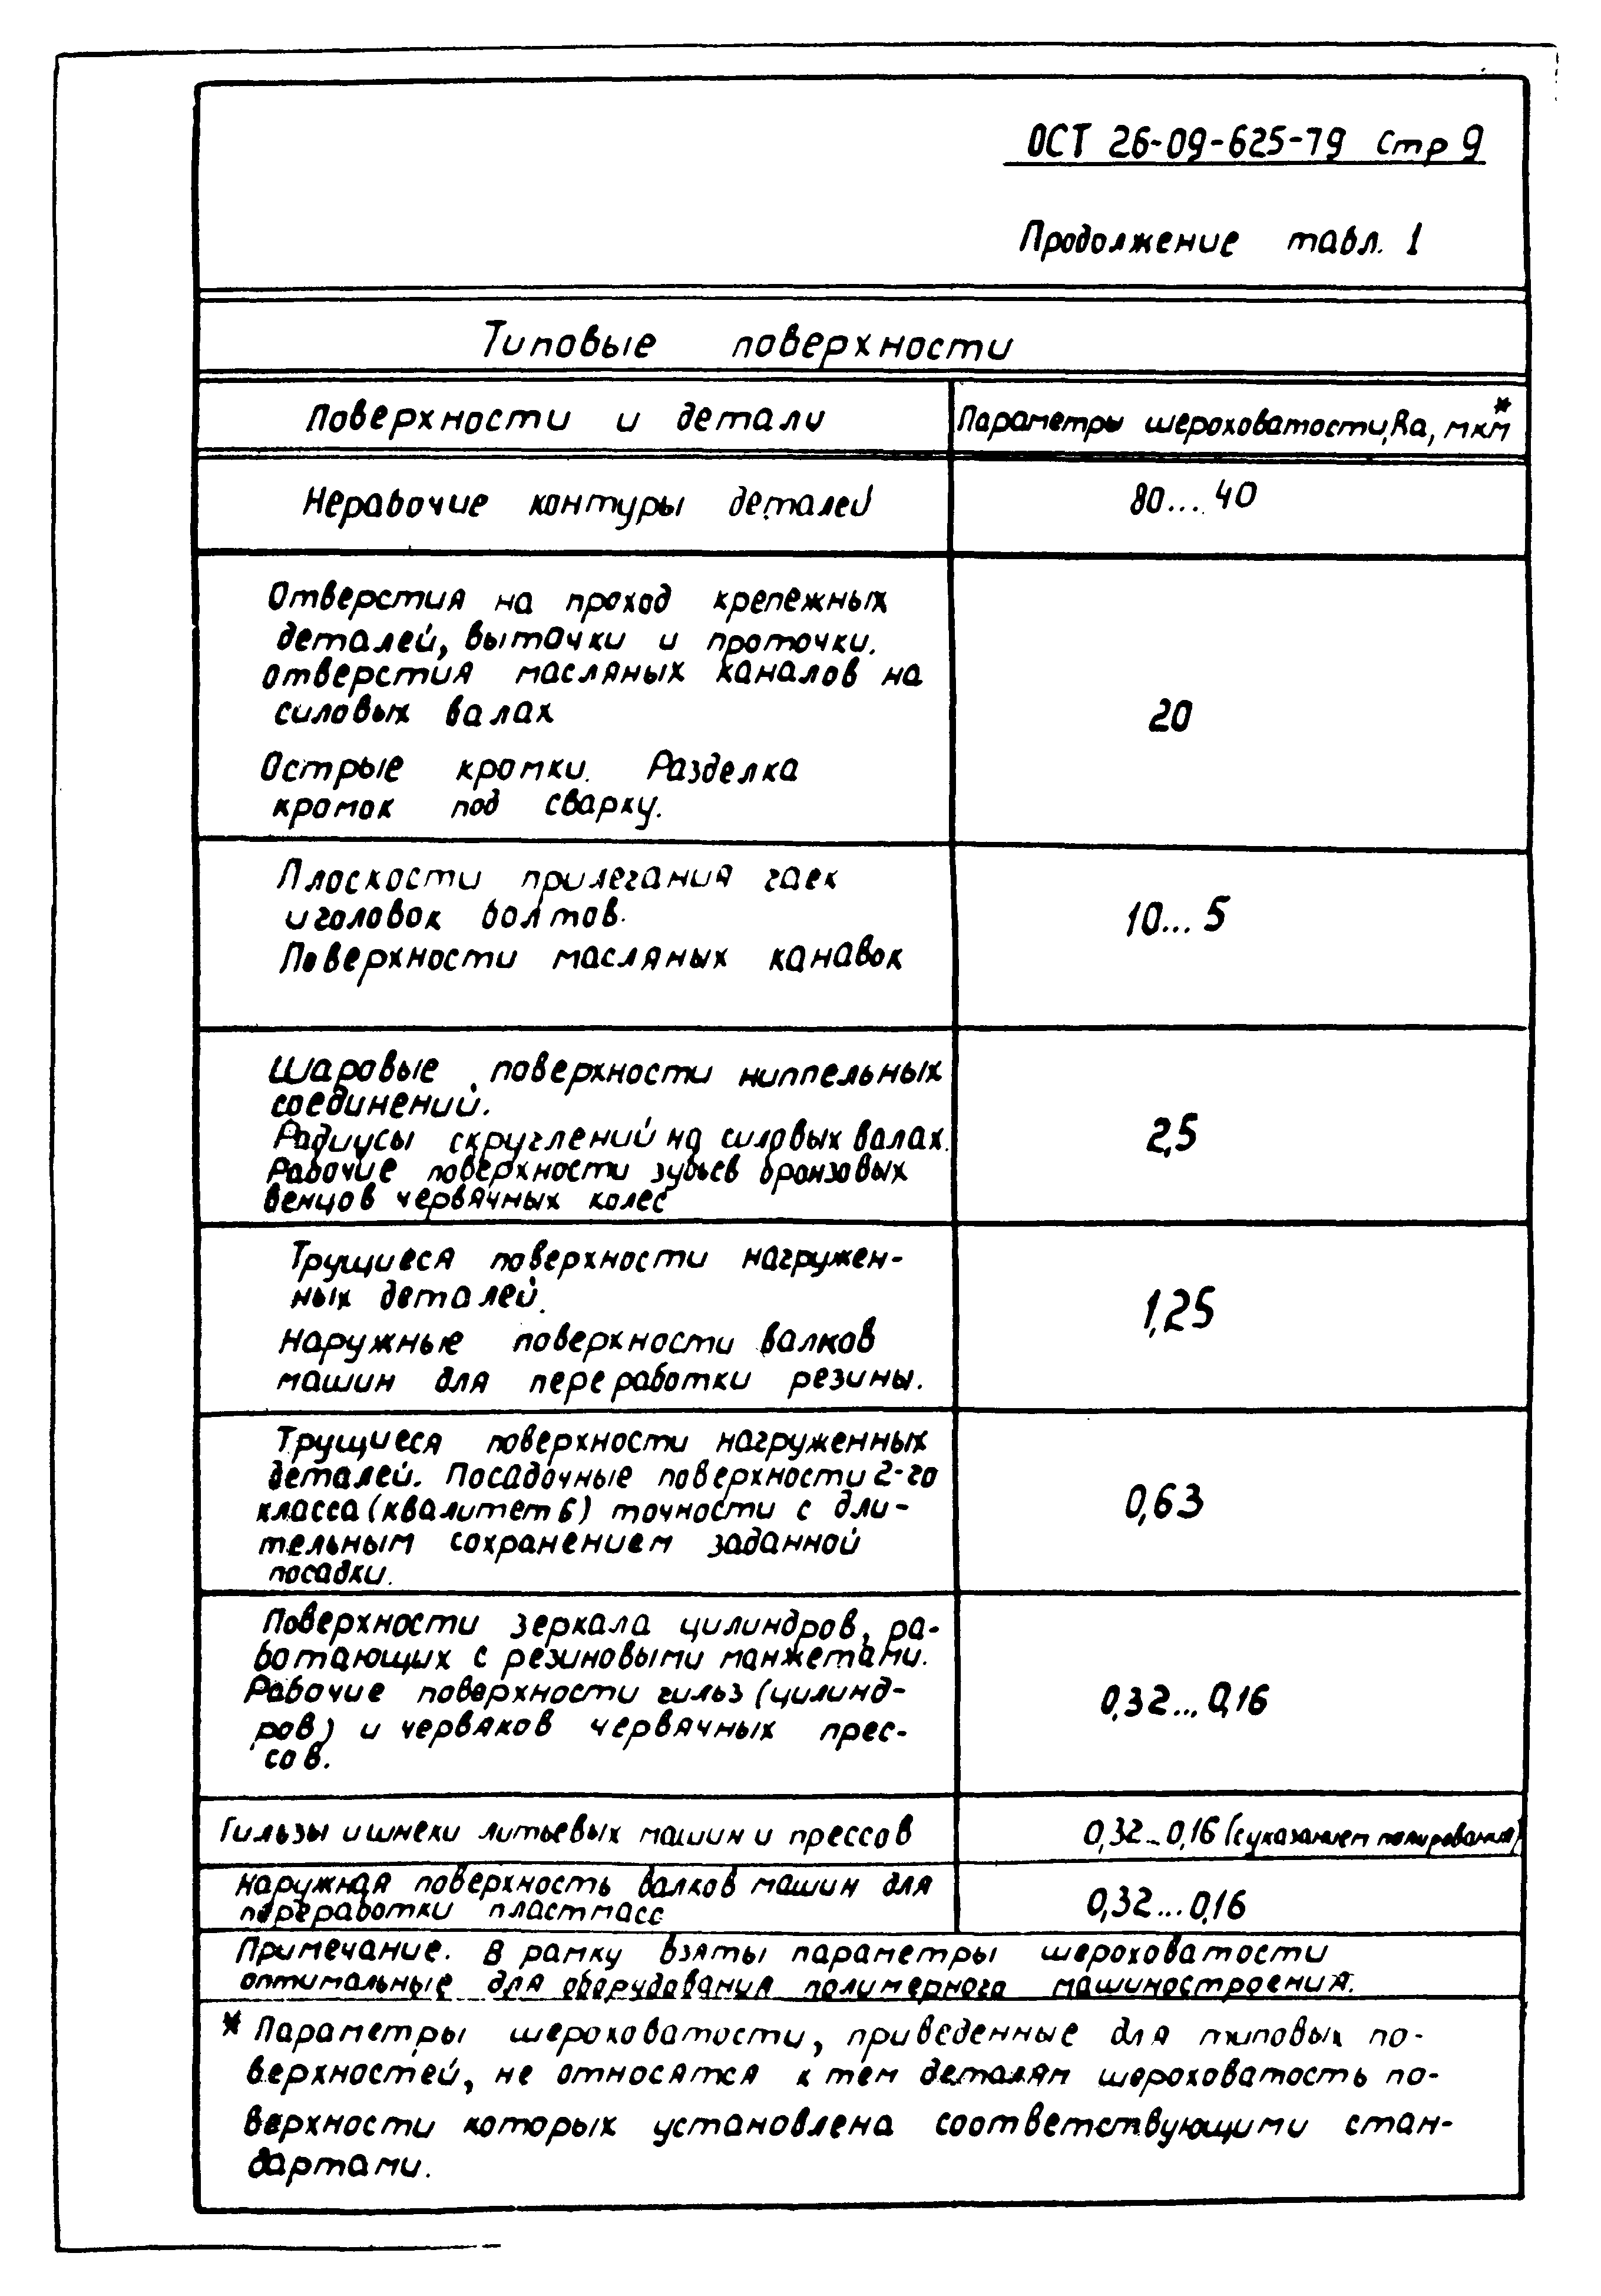 ОСТ 26-09-625-79 Стр 9
Продолжение табл. 1
Типовые поверхности
Поверхности и детали
Параметры шероховатости, Ra, мкм*
Нерабочие контуры деталей
80... 40
Отверстия на проход крепежных
деталей, выточки и проточки.
отверстия масляных каналов на
силовых валах
Острые кромки. Разделка
кромок под сварку.
20
Плоскости прилегания гаек
и головок болтов.
Поверхности масляных канавок
10... 5
Шаровые поверхности ниппельных
соединений.
Радиусы скруглений на силовых валах.
Рабочие поверхности зубьев бронзовых
венцов червячных колес
2,5
Трущиеся поверхности нагружен-
ных деталей.
Наружные поверхности валков
машин для переработки резины.
1,25
Трущиеся поверхности нагруженных
деталей. Посадочные поверхности 2-го
класса (квалитет 6) точности с дли-
тельным сохранением заданной
посадки.
0,63
Поверхности зеркала цилиндров, ра-
ботающих с резиновыми манжетами.
Рабочие поверхности гильз (цилинд-
ров) и червяков червячных прес-
сов.
0,32... 0,16
Гильзы и шнеки литьевых машин и прессов
0,32... 0,16 (с указанием полирования)
Наружная поверхность валков машин для
переработки пластмасс
0,32... 0,16
Примечание. В рамку взяты параметры шероховатости
оптимальные для оборудования полимерного машиностроения.
* Параметры шероховатости, приведенные для типовых по-
верхностей, не относятся к тем деталям шероховатость по-
верхности которых установлена соответствующими стан-
дартами.